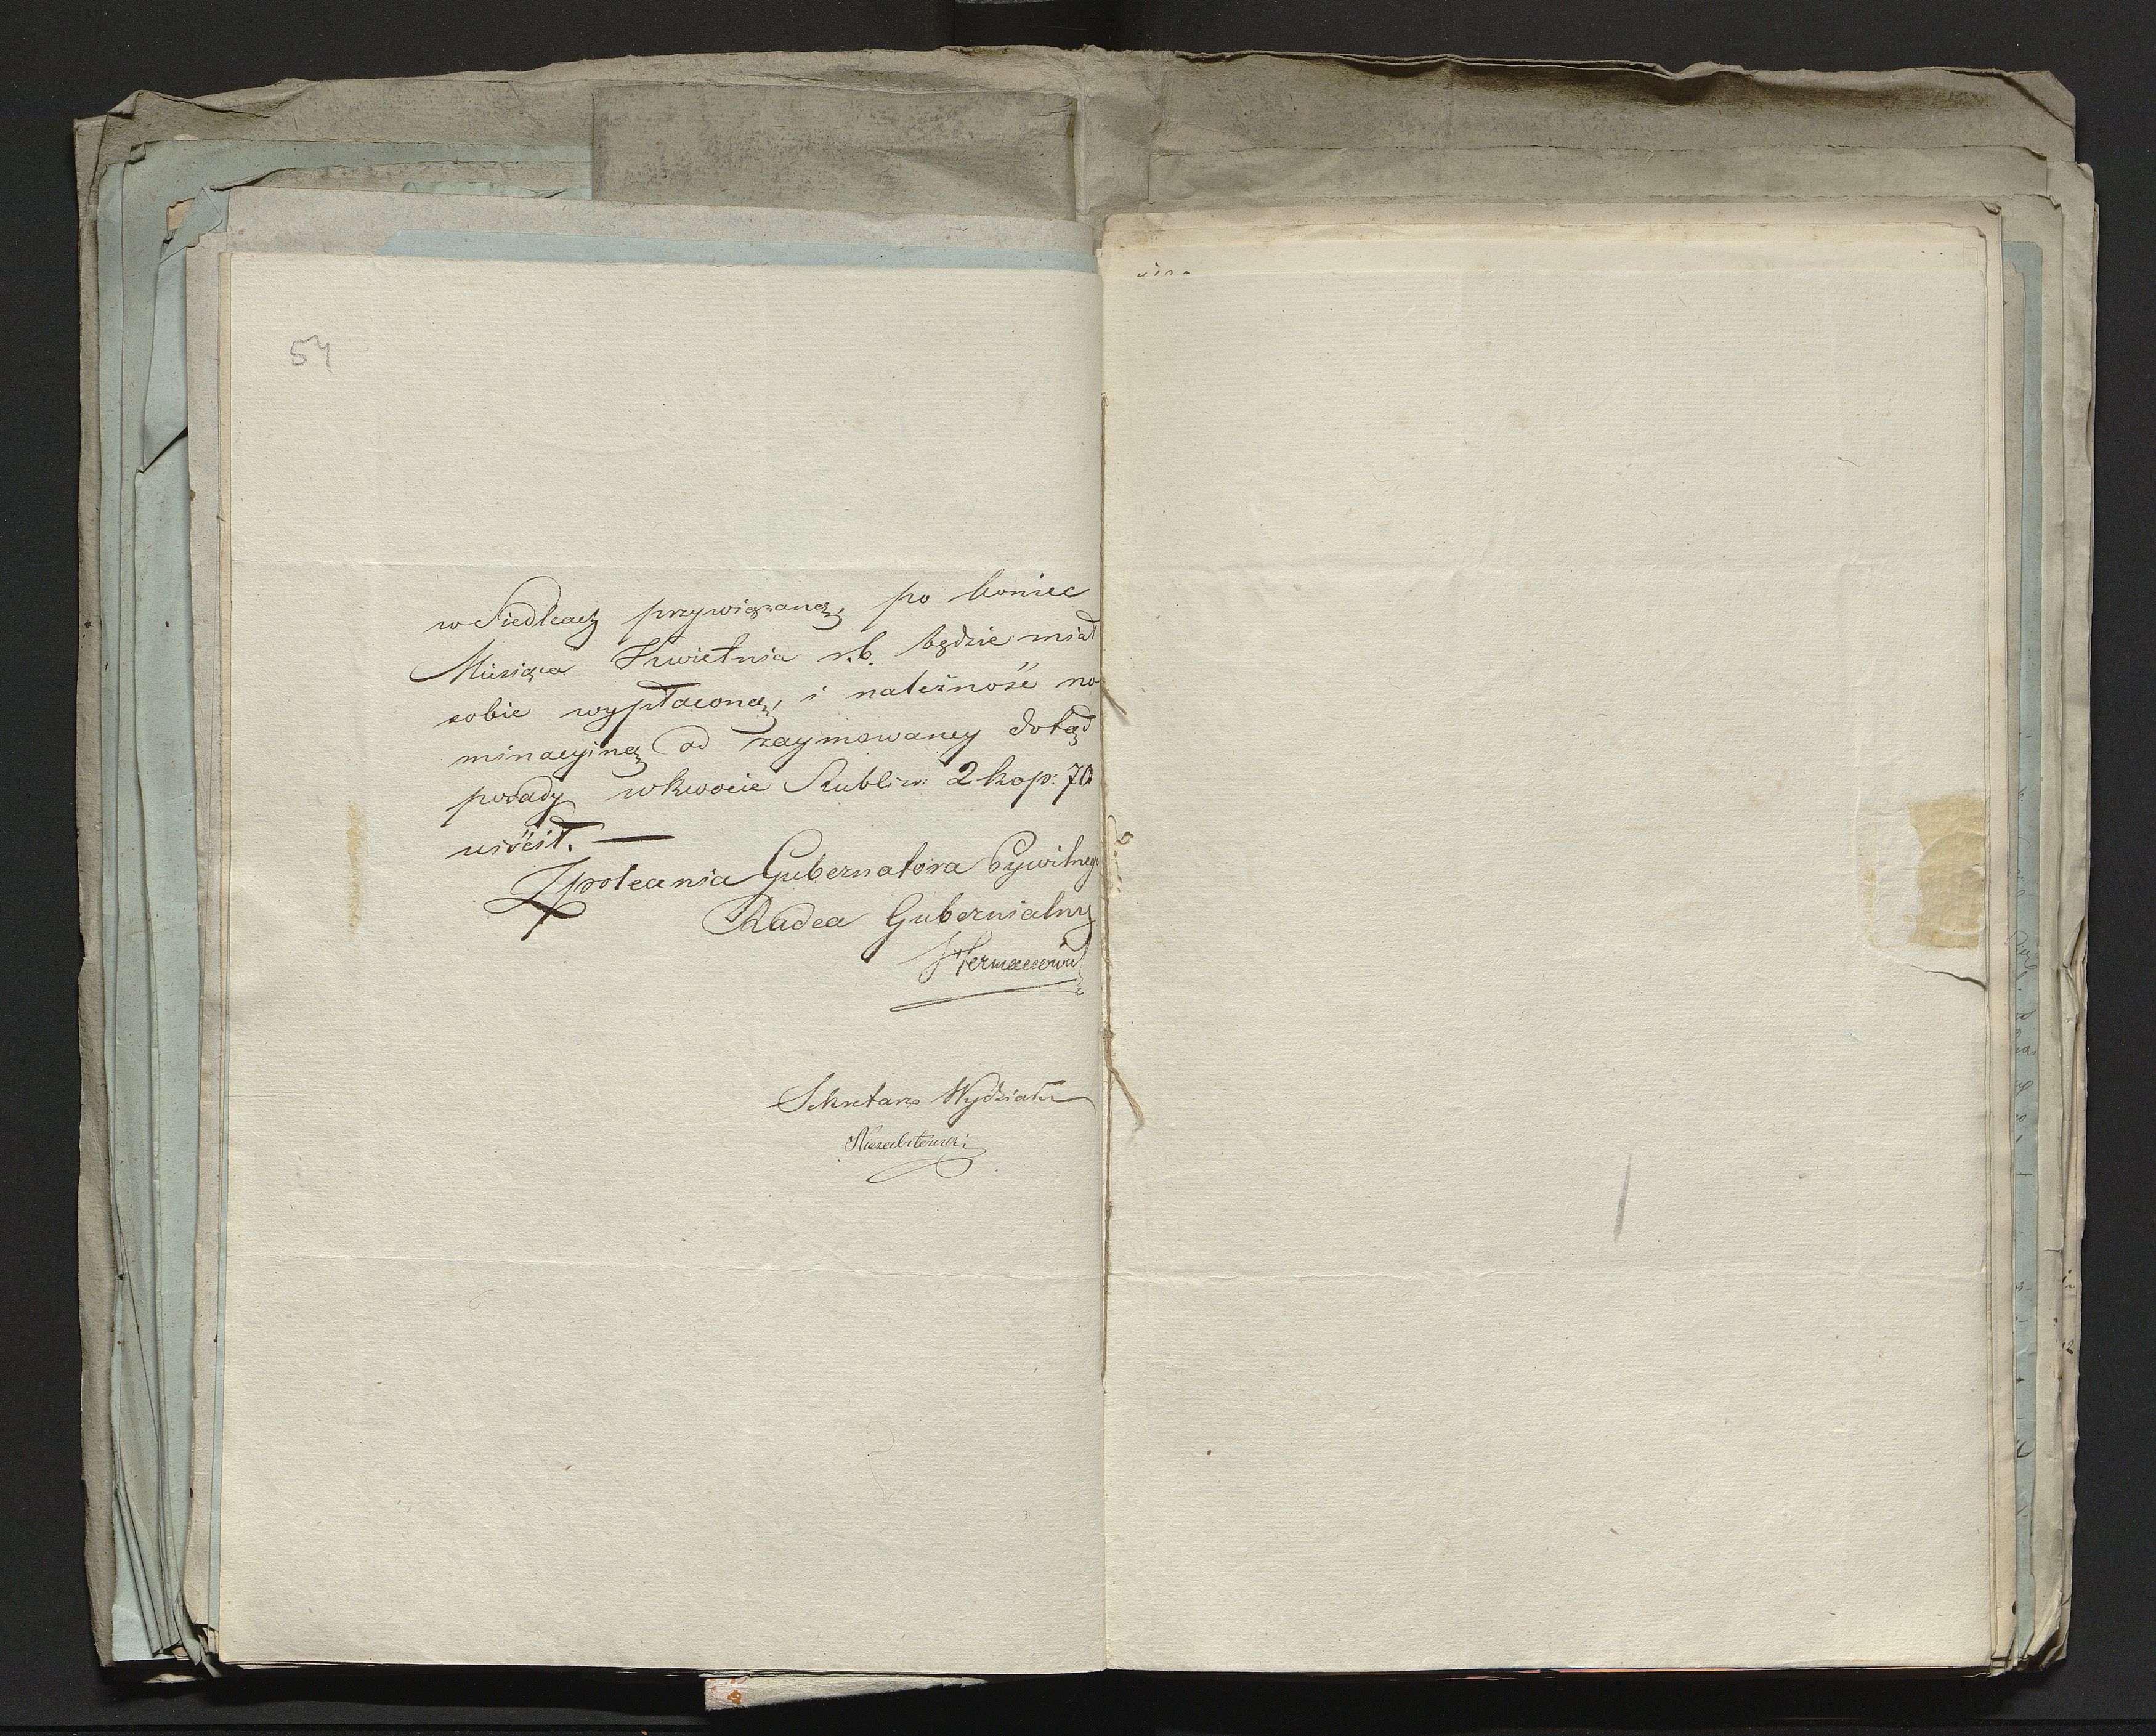 54
w Siedlcach przywiązaną, po koniec
Miesiąca Kwietnia r.b. będzie miał
sobie wypłaconą, i należność no
minacyjną od zaymowaney dotąd
posady w kwocie Rubli sr: 2 kop: 70
uiścił. —
Z polecenia Gubernatora Cywilnego
Radca Gubernialny
Hermanowicz
Sekretarz Wydziału
Niezabitowski